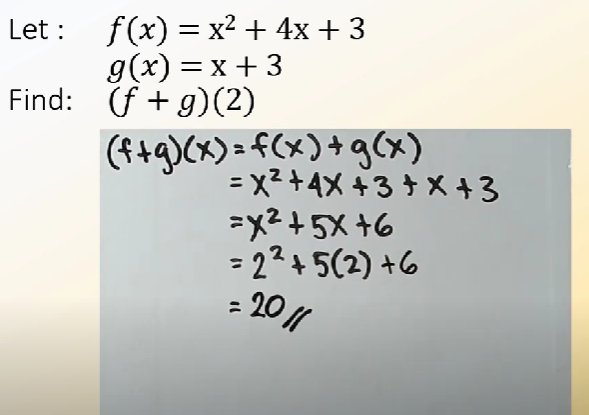 Let : f(x) = x² + 4x + 3
g(x) = x + 3
Find: (f + g)(2)
(f+g)(x) = f(x) + g(x)
= x² + 4x + 3 + x + 3
= x² + 5x + 6
= 2² + 5(2) + 6
= 20 //